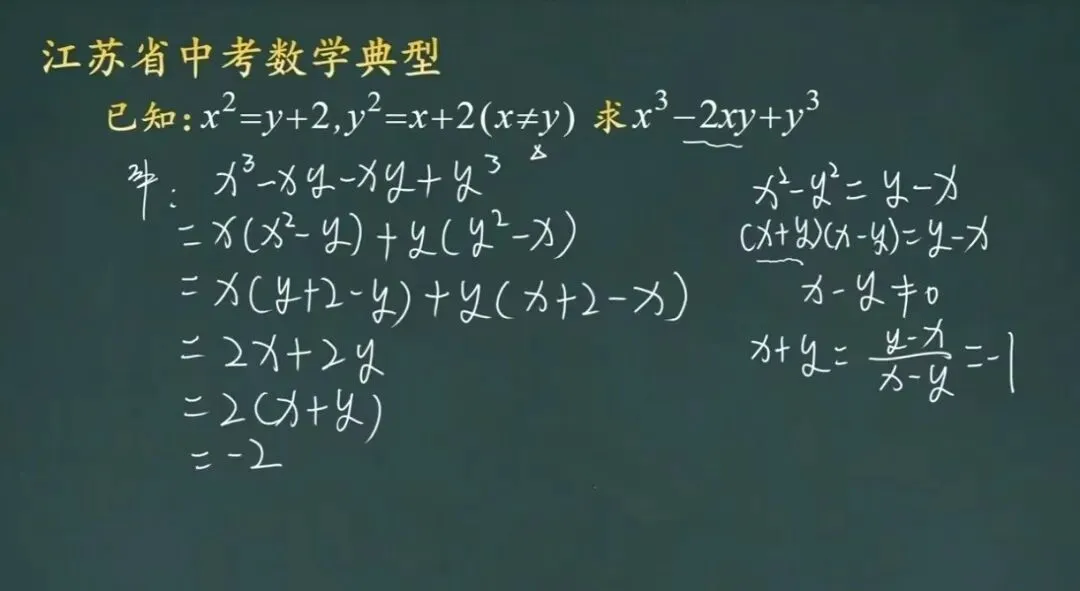 江苏省中考数学典型
已知:x²=y+2,y²=x+2(x≠y) 求x³-2xy+y³
解: x³-xy-xy+y³
=x(x²-y)+y(y²-x)
=x(y+2-y)+y(x+2-x)
=2x+2y
=2(x+y)
=-2
x²-y²=y-x
(x+y)(x-y)=y-x
x-y≠0
x+y=\frac{y-x}{x-y}=-1